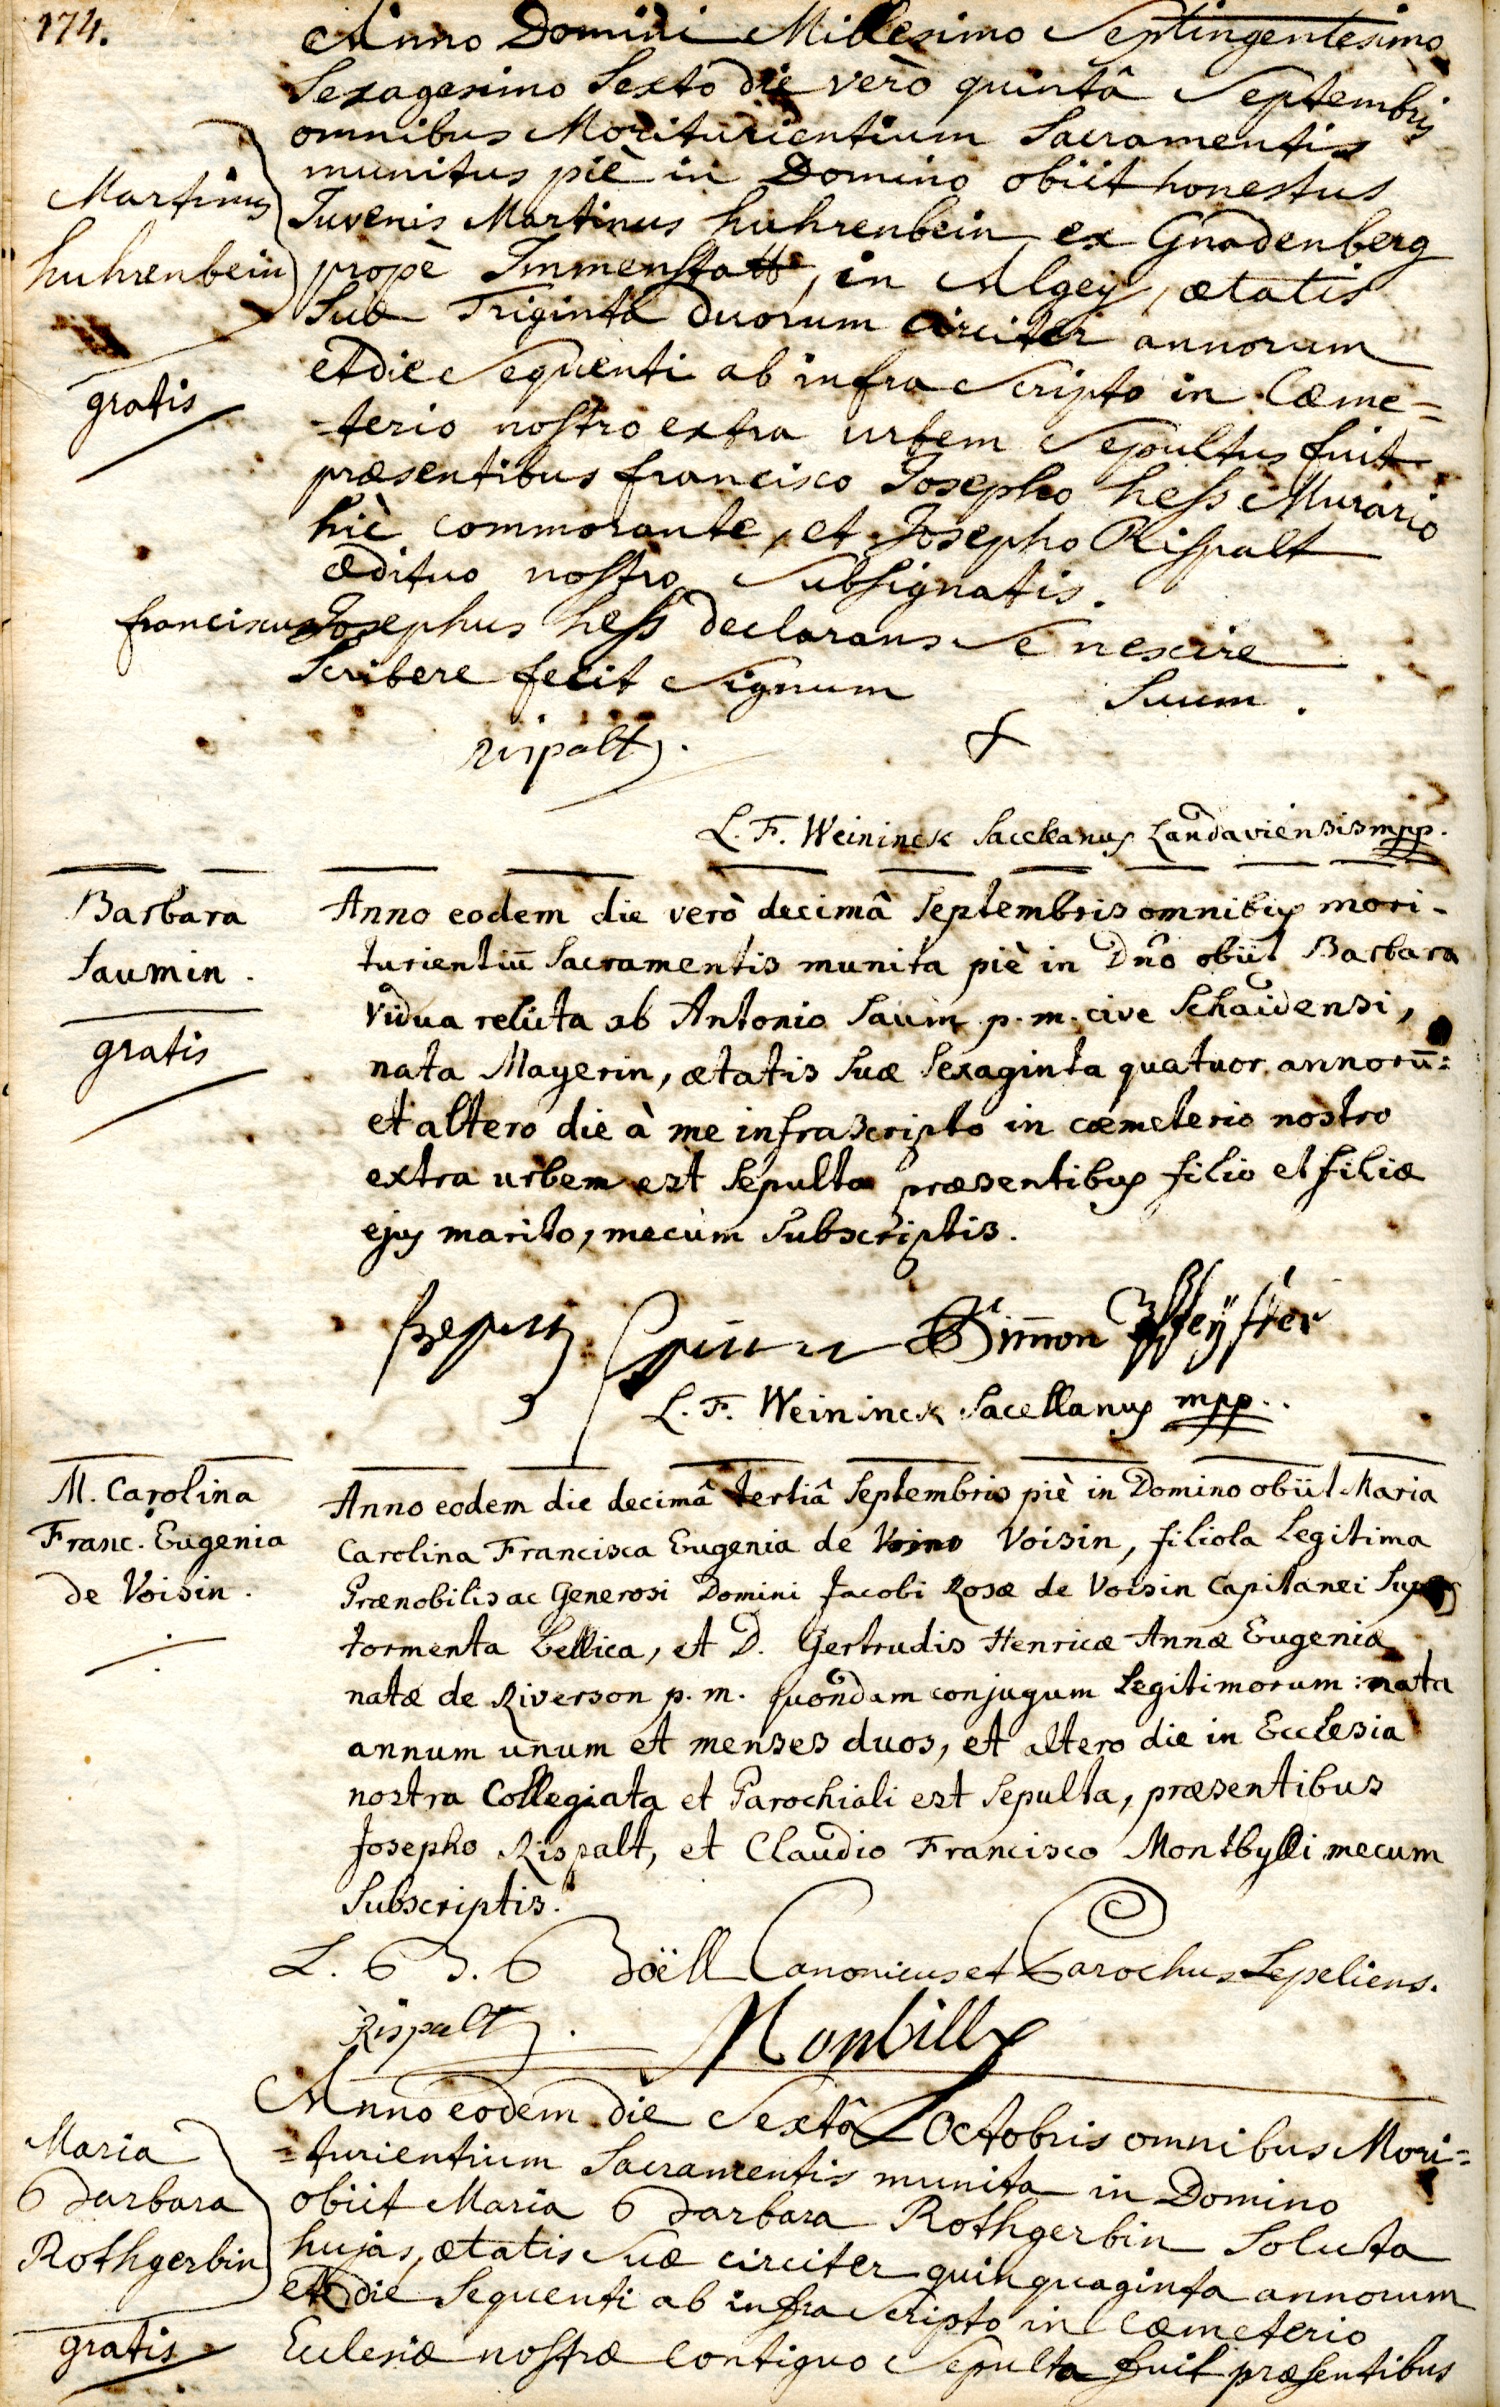 174.
Anno Domini Millesimo Septingentesimo
Sexagesimo Sexto die verò quintâ Septembris
omnibus Moriturientium Sacramentis
munitus piè in Domino obiit honestus
Martinus
huhrenbein
gratis
Juvenis Martinus huhrenbein, ex Gnadenberg
propè Immenstatt, in Algey, ætatis
Suæ Triginta duorum circiter annorum
et die Sequenti ab infra Scripto in Cœme=
=terio nostro extra urbem Sepultus fuit
præsentibus francisco Josepho hess Murario
hìc commorante, et Josepho Rispalt
ædituo nostro Subsignatis.
franciscus Josephus hess declarans Se nescire
Scribere fecit Signum Suum.
rispalt.
L. F. Weininck Sacellanus Landaviensis mpp.
Barbara
Saumin.
gratis
Anno eodem die verò decimâ Septembris omnibus mori-
turientiū Sacramentis munita piè in Dn̂o obiit Barbara
vidua relicta ab Antonio Saum p. m. cive Schaidensi,
nata Mayerin, ætatis Suæ Sexaginta quatuor annorū:
et altero die à me infrascripto in cœmeterio nostro
extra urbem est Sepulta præsentibus filio et filiæ
ejus marito, mecum Subscriptis.
Simon Pfeÿster
L. F. Weininck Sacellanus mpp..
M. Carolina
Franc. Eugenia
de Voisin.
Anno eodem die decimâ tertiâ Septembris piè in Domino obiit Maria
Carolina Francisca Eugenia de Voisin, filiola Legitima
Prænobilis ac Generosi Domini Jacobi Rosæ de Voisin Capitanei Super
tormenta bellica, et D. Gertrudis Henricæ Annæ Eugeniæ
natæ de Riverson p. m. quondam conjugum Legitimorum: nata
annum unum et menses duos, et altero die in Ecclesia
nostra Collegiata et Parochiali est Sepulta, præsentibus
Josepho Rispalt, et Claudio Francisco Montbylli mecum
Subscriptis.
Canonicus et Parochus Sepeliens.
Rispalt.
Monbilly
Maria
Barbara
Rothgerbin
gratis
Anno eodem die Sextâ Octobris omnibus Mori=
=turientium Sacramentis munita in Domino
obiit Maria Barbara Rothgerbin Soluta
hujas, ætatis Suæ circiter quinquaginta annorum
et die Sequenti ab infra Scripto in Cœmeterio
Ecclesiæ nostræ Contiguo Sepulta fuit præsentibus